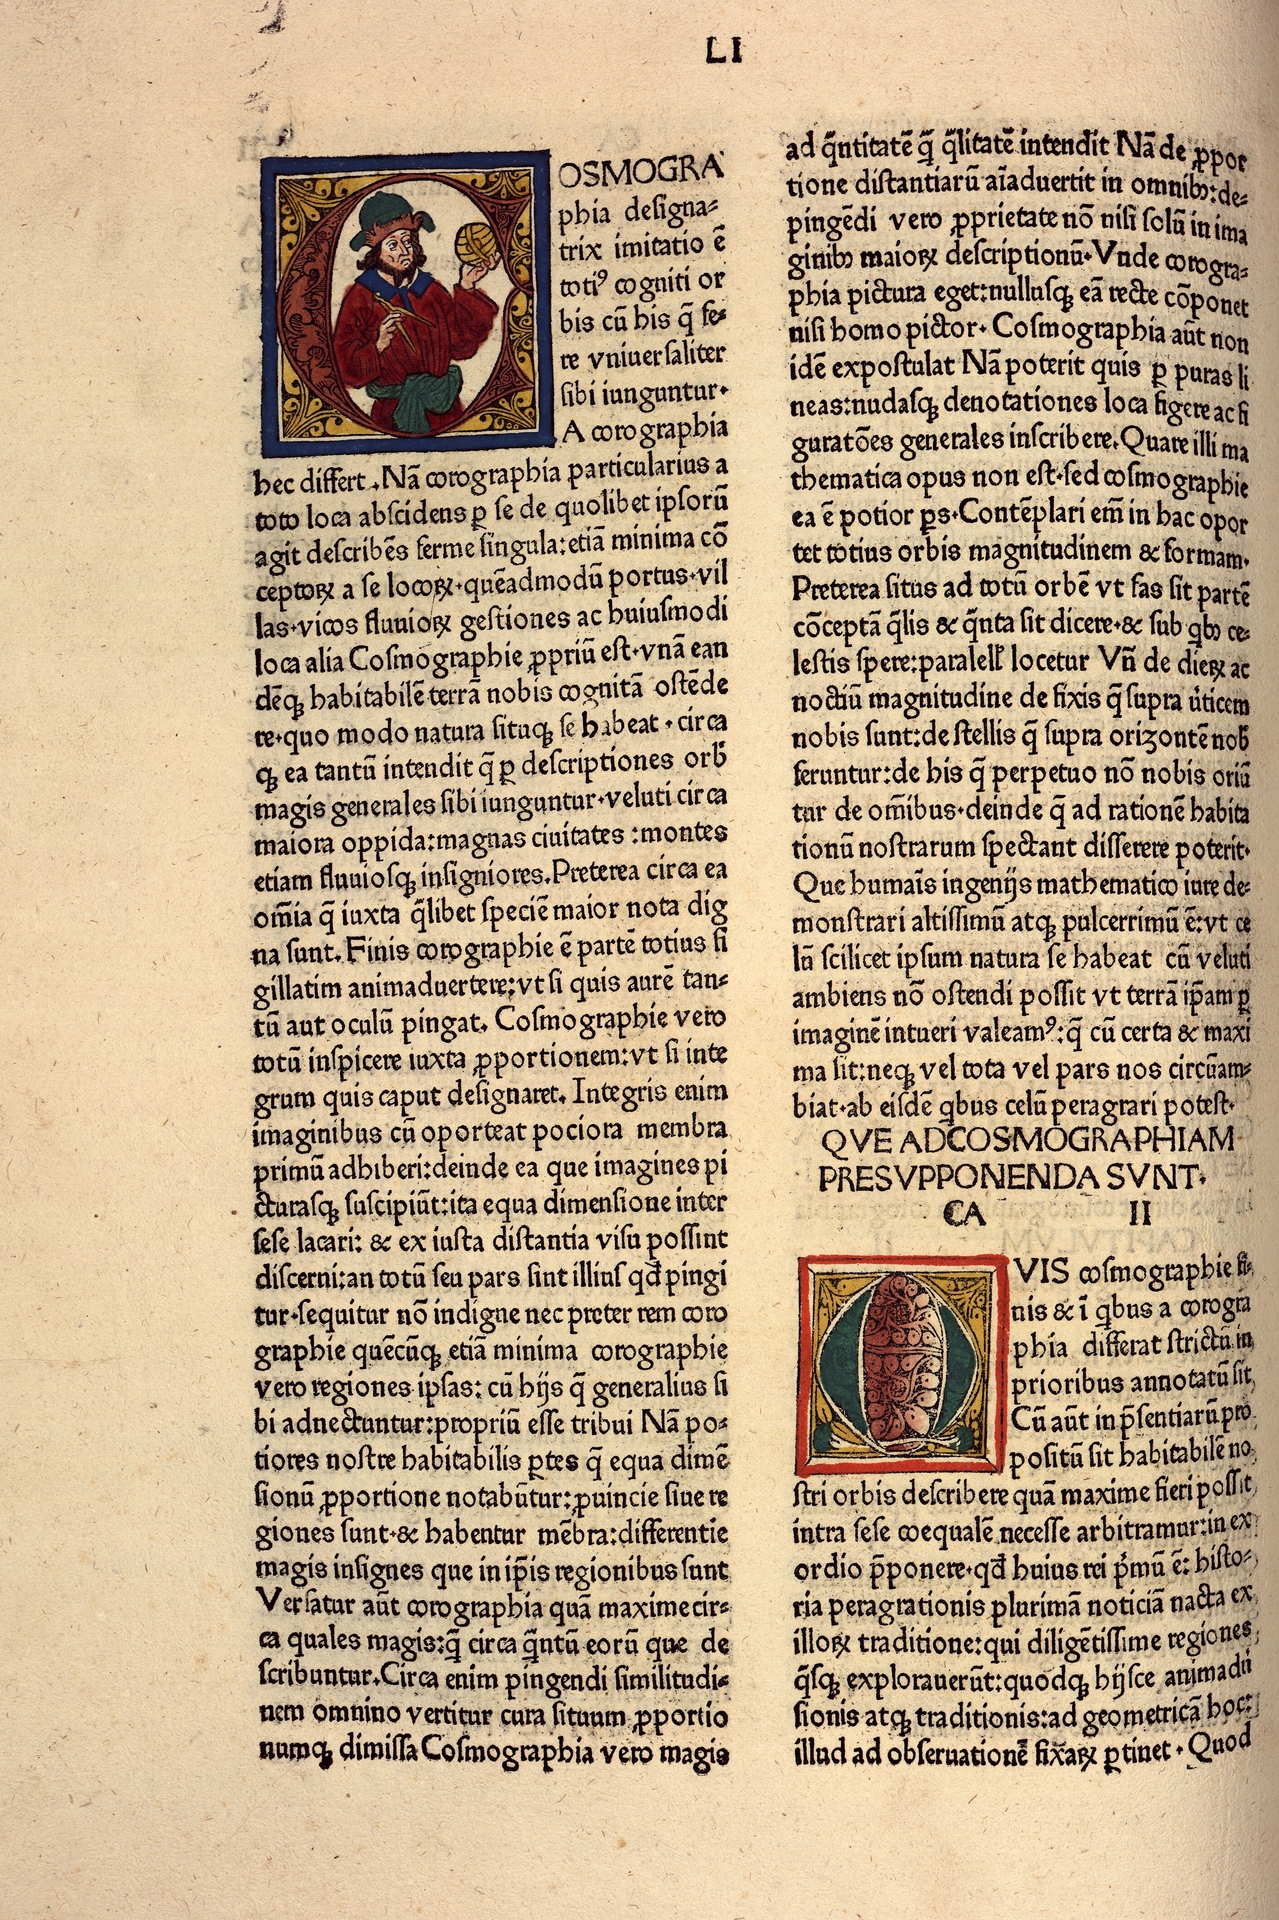 LI
COSMOGRA
phia designa=
trix imitatio ē
totiꝰ cogniti or
bis cū his q̄ fe=
re vniuersaliter
sibi iunguntur·
A corographia
hec differt. Nā corographia particularius a
toto loca abscidens ꝑ se de quolibet ipsorū
agit describēs ferme singula:etiā minima cō
ceptoꝝ a se locoꝝ·quēadmodū portus·vil
las·vicos fluuioꝝ gestiones ac huiusmodi
loca alia Cosmographie ꝓpriū est·vnā ean
dēqꝫ habitabilē terrā nobis cognitā ostēde
re·quo modo natura situqꝫ se habeat·circa
qꝫ ea tantū intendit q̄ ꝑ descriptiones orb̄
magis generales sibi iunguntur·veluti circa
maiora oppida:magnas ciuitates:montes
etiam fluuiosqꝫ insigniores.Preterea circa ea
om̄ia q̄ iuxta q̄libet speciē maior nota dig
na sunt. Finis corographie ē partē totius si
gillatim animaduertere;vt si quis aurē tan=
tū aut oculū pingat. Cosmographie vero
totū inspicere iuxta ꝓportionem:vt si inte
grum quis caput designaret. Integris enim
imaginibus cū oporteat pociora membra
primū adhiberi:deinde ea que imagines pi
cturasqꝫ suscipiūt:ita equa dimensione inter
sese lacari: & ex iusta distantia visu possint
discerni:an totū seu pars sint illius qd̄ pingi
tur·sequitur nō indigne nec preter rem coro
graphie quēcūqꝫ etiā minima corographie
vero regiones ipsas: cū hijs q̄ generalius si
bi adnectuntur:propriū esse tribui Nā po=
tiores nostre habitabilis ꝑtes q̄ equa dimē
sionū ꝓportione notabūtur:ꝓuincie siue re
giones sunt·& habentur mēbra:differentie
magis insignes que in ip̄is regionibus sunt
Versatur aūt corographia quā maxime cir=
ca quales magis:q̄ circa q̄ntū eorū que de
scribuntur.Circa enim pingendi similitudi=
nem omnino vertitur cura situum ꝓportio
numqꝫ dimissa Cosmographia vero magis
ad q̄ntitatē q̄ q̄litatē intendit Nā de ꝓpor
tione distantiarū aīaduertit in omnibꝫ:de=
pingēdi vero ꝓprietate nō nisi solū in ima
ginibꝫ maioꝝ descriptionū·Vnde corogra=
phia pictura eget:nullusqꝫ eā recte cōponet
nisi homo pictor· Cosmographia aūt non
idē expostulat Nā poterit quis ꝑ puras li
neas:nudasqꝫ denotationes loca figere ac fi
guratōes generales inscribere.Quare illi ma
thematica opus non est·sed cosmographie
ea ē potior ꝑs·Contēplari em̄ in hac opor
tet totius orbis magnitudinem & formam·
Preterea situs ad totū orbē vt fas sit partē
cōceptā q̄lis & q̄nta sit dicere·& sub qbꝫ ce=
lestis spere:paralell' locetur Vn̄ de dieꝝ ac
noctiū magnitudine de fixis q̄ supra ũticem
nobis sunt:de stellis q̄ supra orizontē nob̄
feruntur:de his q̄ perpetuo nō nobis oriū
tur de om̄ibus·deinde q̄ ad rationē habita
tionū nostrarum spectant disserere poterit·
Que humaīs ingenijs mathematico iure de=
monstrari altissimū atqꝫ pulcerrimū ē:vt ce
lū scilicet ipsum natura se habeat cū veluti
ambiens nō ostendi possit vt terrā ip̄am ꝑ
imaginē intueri valeamꝰ:q̄ cū certa & maxi
ma sit:neqꝫ vel tota vel pars nos circūam=
biat·ab eisdē qbus celū peragrari potest·
QVE AD COSMOGRAPHIAM
PRESVPPONENDA SVNT·
CA II
QVIS cosmographie fi=
nis & ī qbus a corogra
phia differat strictū in
prioribus annotatū sit,
Cū aūt in p̄sentiarū pro
positū sit habitabilē no
stri orbis describere quā maxime fieri possit
intra sese coequalē necesse arbitramur:in ex
ordio p̄ponere·qd̄ huius rei p̄mū ē: histo=
ria peragrationis plurimā noticiā nacta ex
illoꝝ traditione:qui diligētissime regiones
q̄sqꝫ explorauerūt:quodqꝫ hijsce animadū
sionis atqꝫ traditionis:ad geometricā hoc:
illud ad obseruationē fixaꝝ ꝑtinet · Quod